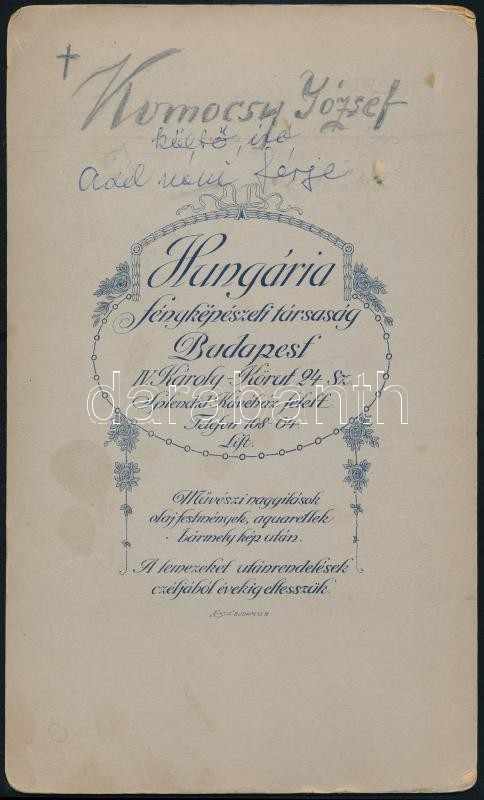 † Komocsy József
költő, író
Adél néni férje
Hungária
fényképészeti társaság
Budapest
IV. Károly-Körut 24 sz.
Splendid-Kávéház felett.
Telefon 108-64.
Lift.
Művészi nagyitások
olajfestmények, aquarellek
bármely kép után.
A lemezeket utánrendelések
czéljából évekig eltesszük.
darabanth